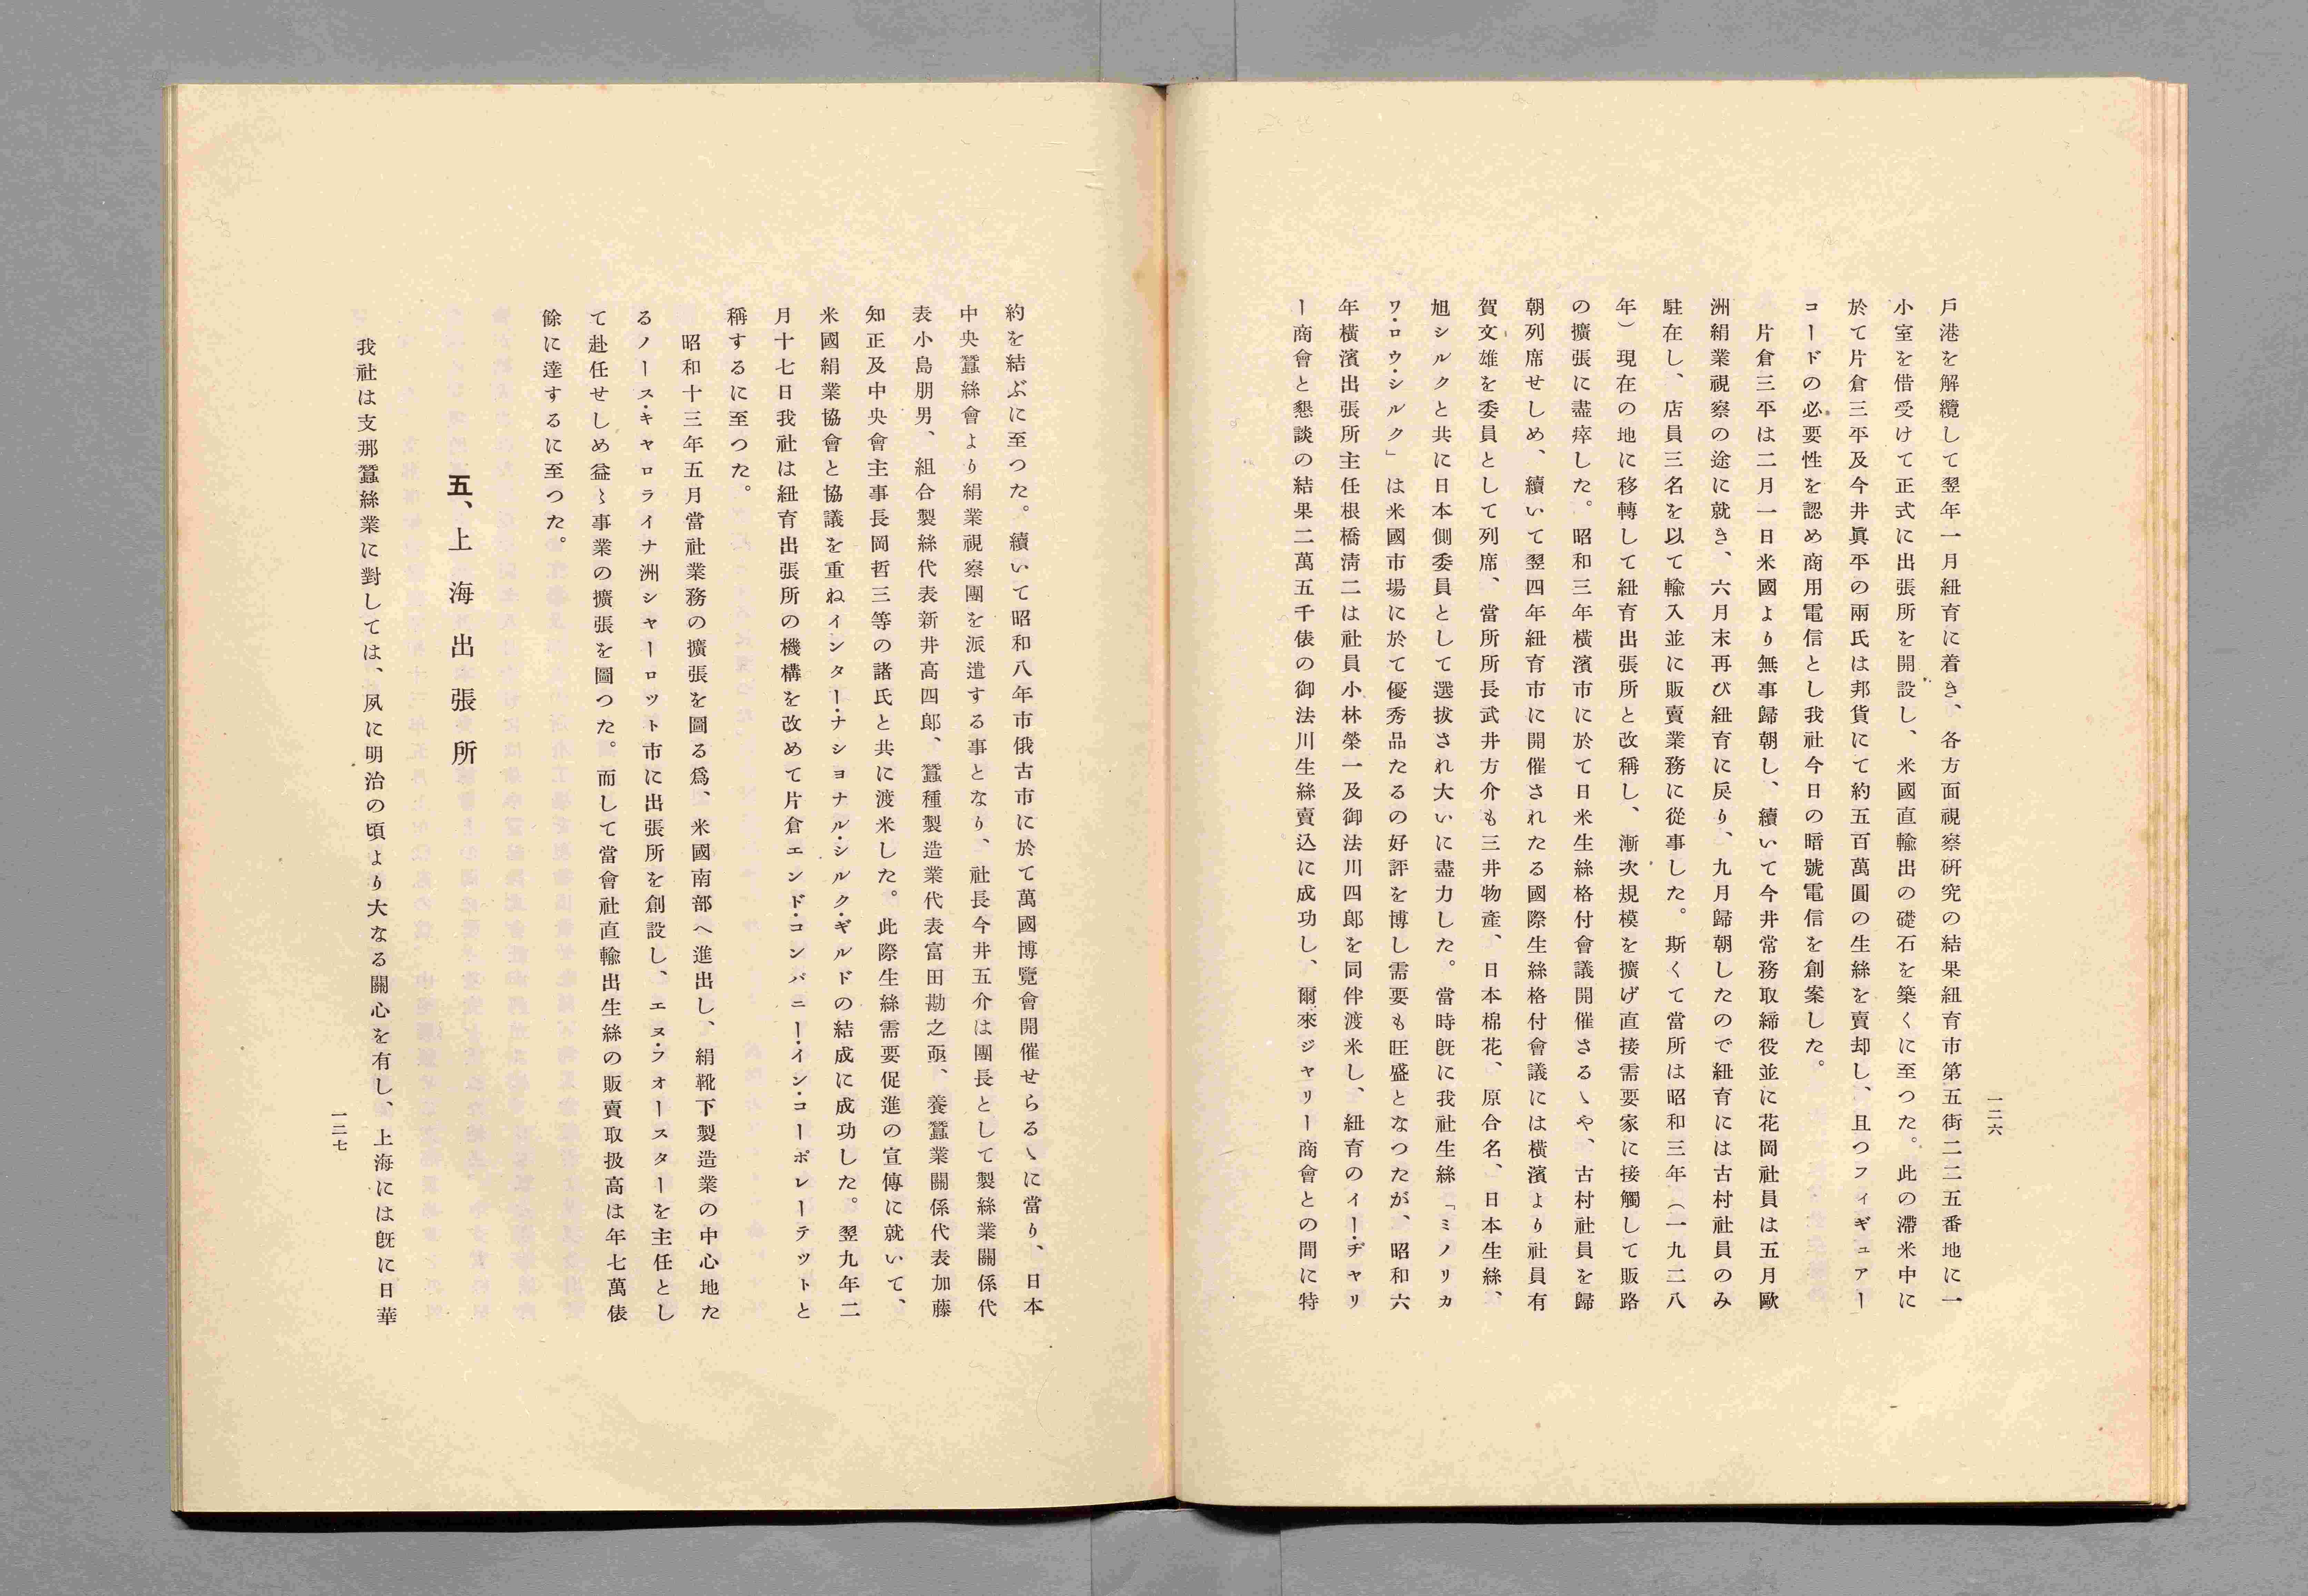 戶港を解纜して翌年一月紐育に着き、各方面視察硏究の結果紐育市第五街二二五番地に一
小室を借受けて正式に出張所を開設し、米國直輸出の礎石を築くに至つた。此の滯米中に
於て片倉三平及今井眞平の兩氏は邦貨にて約五百萬圓の生絲を賣却し、且つフィギュアー
コードの必要性を認め商用電信とし我社今日の暗號電信を創案した。
片倉三平は二月一日米國より無事歸朝し、續いて今井常務取締役並に花岡社員は五月歐
洲絹業視察の途に就き、六月末再び紐育に戾り、九月歸朝したので紐育には古村社員のみ
駐在し、店員三名を以て輸入並に販賣業務に從事した。斯くて當所は昭和三年(一九二八
年)現在の地に移轉して紐育出張所と改稱し、漸次規模を擴げ直接需要家に接觸して販路
の擴張に盡瘁した。昭和三年橫濱市に於て日米生絲格付會議開催さるゝや、古村社員を歸
朝列席せしめ、續いて翌四年紐育市に開催されたる國際生絲格付會議には橫濱より社員有
賀文雄を委員として列席、當所所長武井方介も三井物產、日本棉花、原合名、日本生絲、
旭シルクと共に日本側委員として選拔され大いに盡力した。當時旣に我社生絲「ミノリカ
ワ・ロウ・シルク」は米國市場に於て優秀品たるの好評を博し需要も旺盛となつたが、昭和六
年橫濱出張所主任根橋淸二は社員小林榮一及御法川四郞を同伴渡米し、紐育のイー・ヂャリ
ー商會と懇談の結果二萬五千俵の御法川生絲賣込に成功し、爾來ジャリー商會との間に特
一二六
約を結ぶに至つた。續いて昭和八年市俄古市に於て萬國博覽會開催せらるゝに當り、日本
中央蠶絲會より絹業視察團を派遣する事となり、社長今井五介は團長として製絲業關係代
表小島朋男、組合製絲代表新井高四郞、蠶種製造業代表富田勘之亟、養蠶業關係代表加藤
知正及中央會主事長岡哲三等の諸氏と共に渡米した。此際生絲需要促進の宣傳に就いて、
米國絹業協會と協議を重ねインター・ナショナル・シルク・ギルドの結成に成功した。翌九年二
月十七日我社は紐育出張所の機構を改めて片倉エンド・コンパニー・イン・コーポレーテットと
稱するに至つた。
昭和十三年五月當社業務の擴張を圖る爲、米國南部へ進出し、絹靴下製造業の中心地た
るノース・キャロライナ洲シャーロット市に出張所を創設し、エヌ・フオースターを主任とし
て赴任せしめ益〻事業の擴張を圖つた。而して當會社直輸出生絲の販賣取扱高は年七萬俵
餘に達するに至つた。
五、上海出張所
我社は支那蠶絲業に對しては、夙に明治の頃より大なる關心を有し、上海には旣に日華
一二七